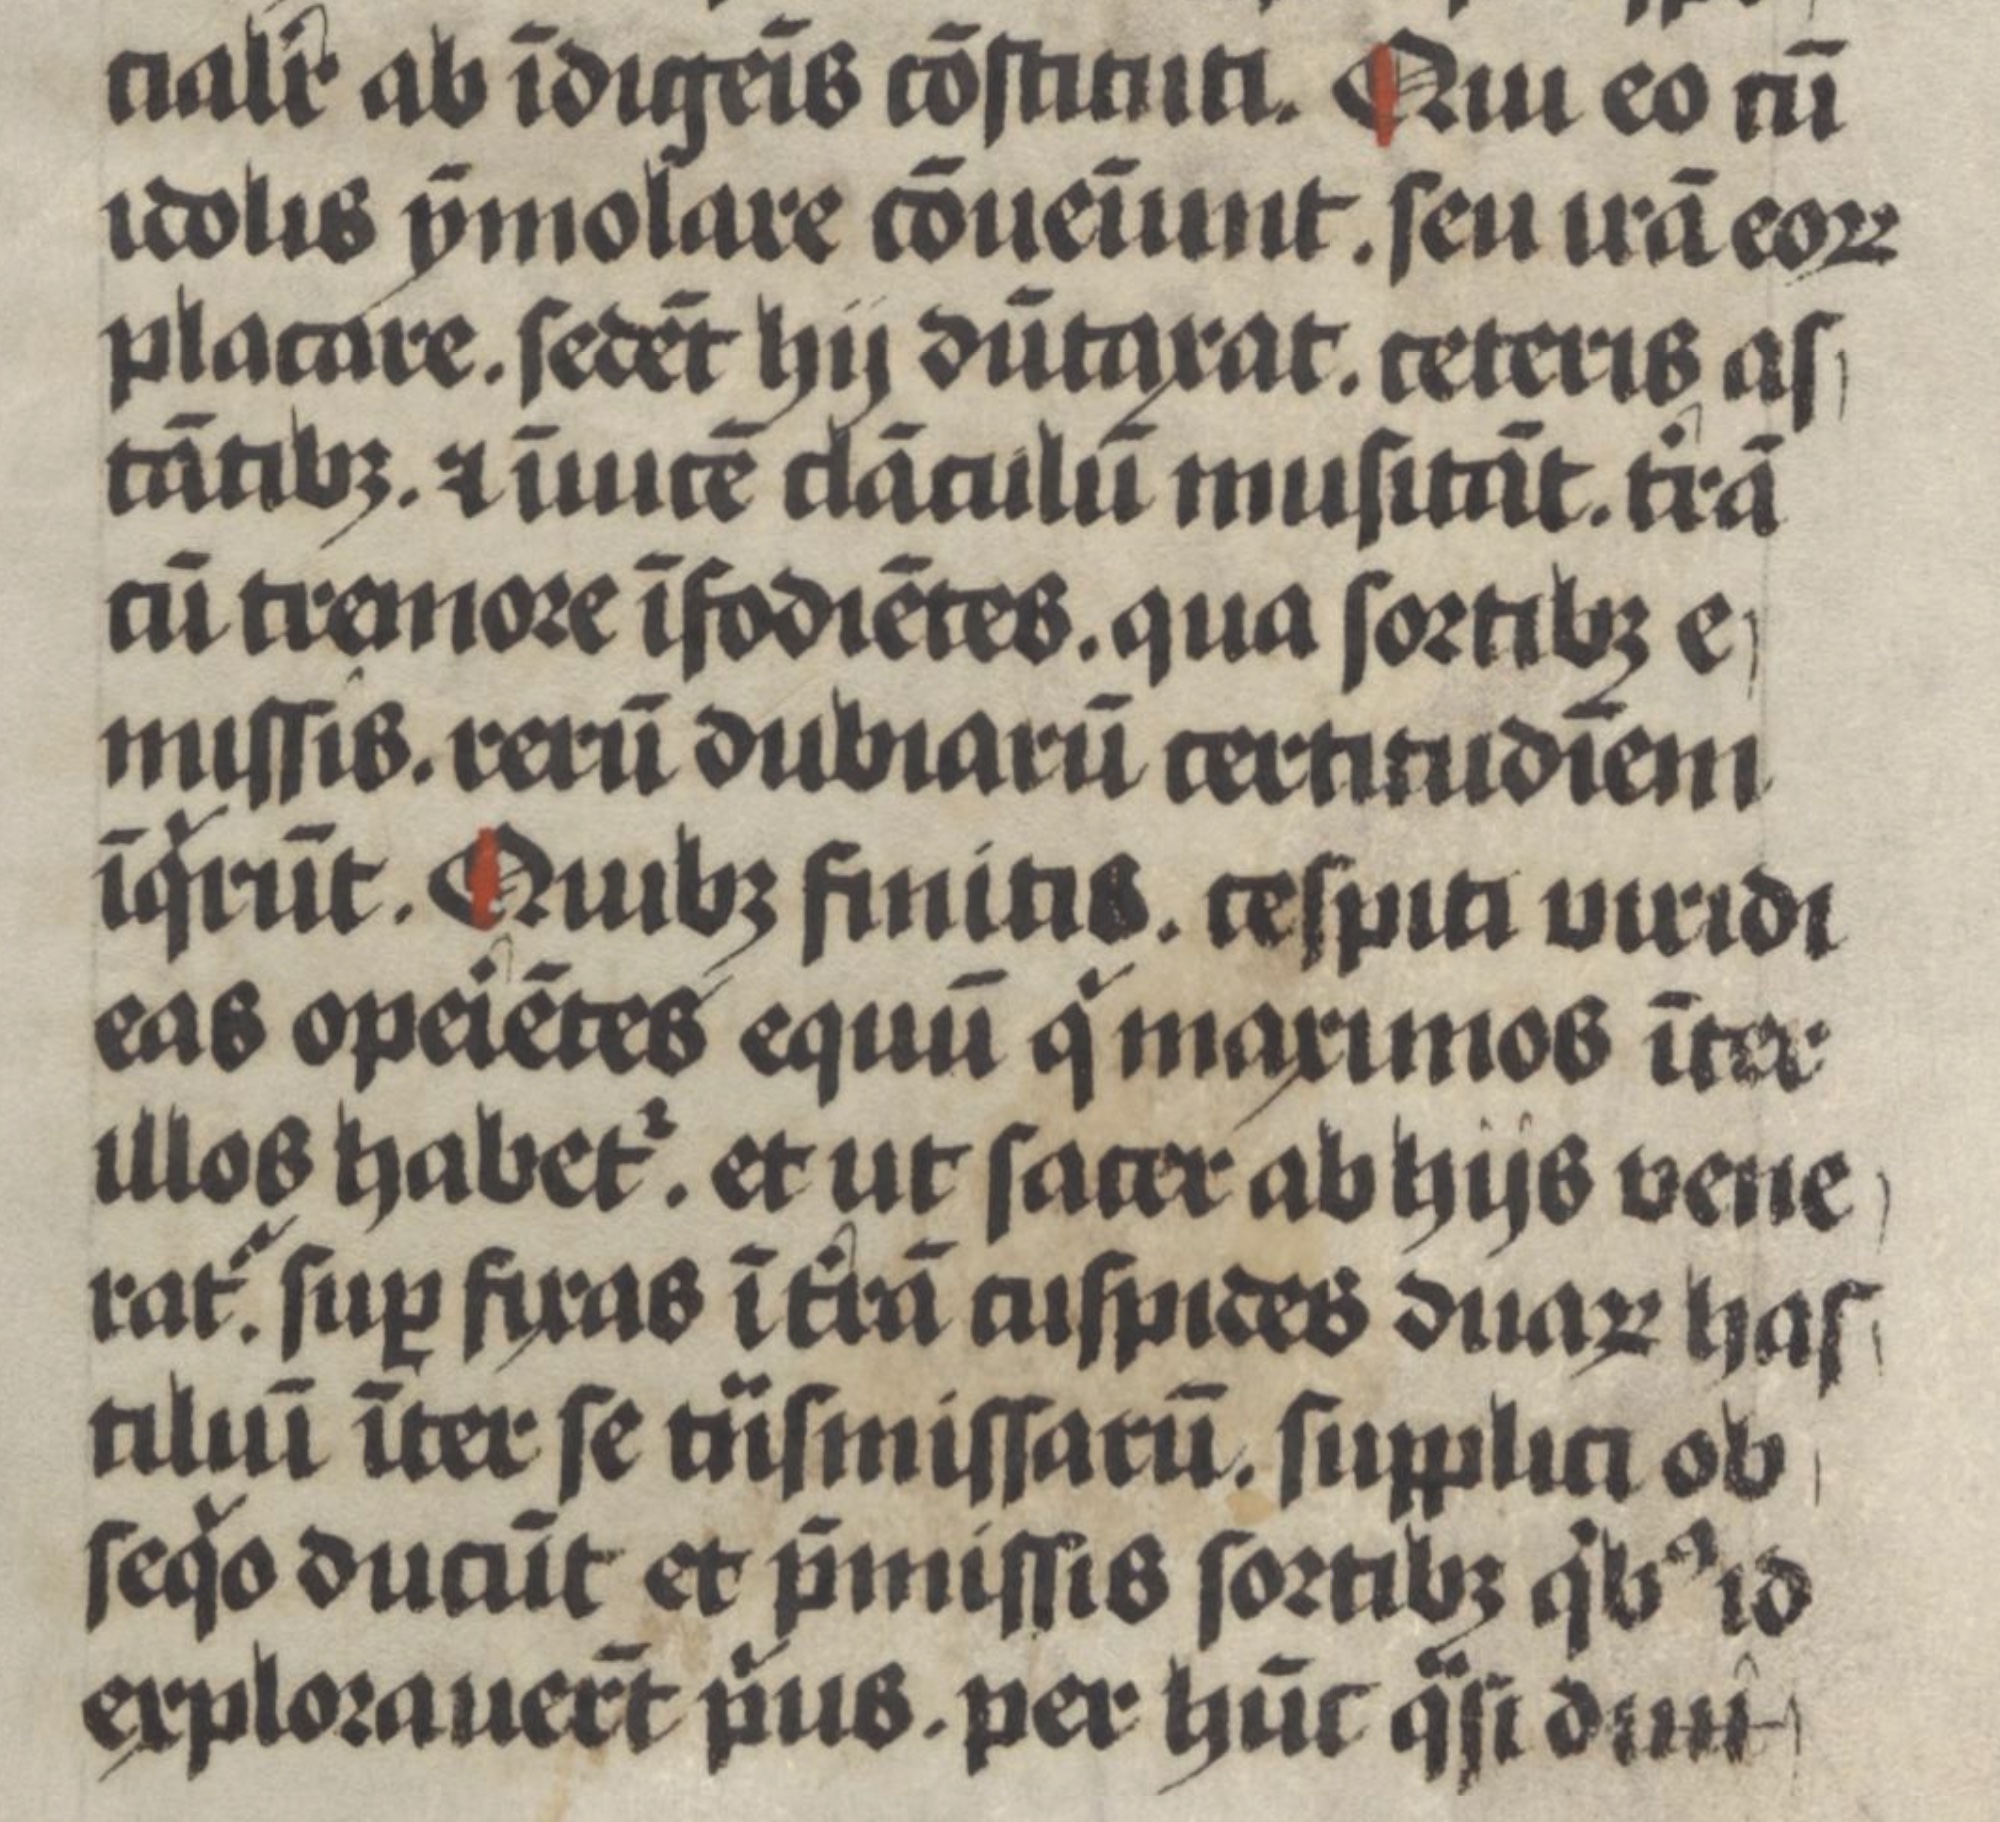 cialit᷑ ab īdigeīs cōſtituti. Qui eo cū
idolis ẏ̄molare cōueīunt. ſeu irā eoꝝ
placare. ſedēt hij dūtaxat. ceteris aſ
tātibꝫ. ⁊ īuicē clāculū muſitāt. t͛rā
cū tremore īfodiētes. qua ſortibꝫ e
miſſis. rerū dubiarū certitudīem
īqͥrūt. Quibꝫ finitis. ceſpiti viridi
eas opeͥētes equū qͥ maximos īter
illos habet᷑. et ut ſacer ab hijs vene
rat᷑. ſuꝑ fixas ī t͛rā cuſpides duaꝝ haſ
tiliuī īter ſe tᷓnſmiſſarū. ſupplici ob
ſeqͥo ducūt et p̄miſſis ſortibꝫ qͥbꝰ id
explorauer̄t pͥus. per hūc qᷓſi diui